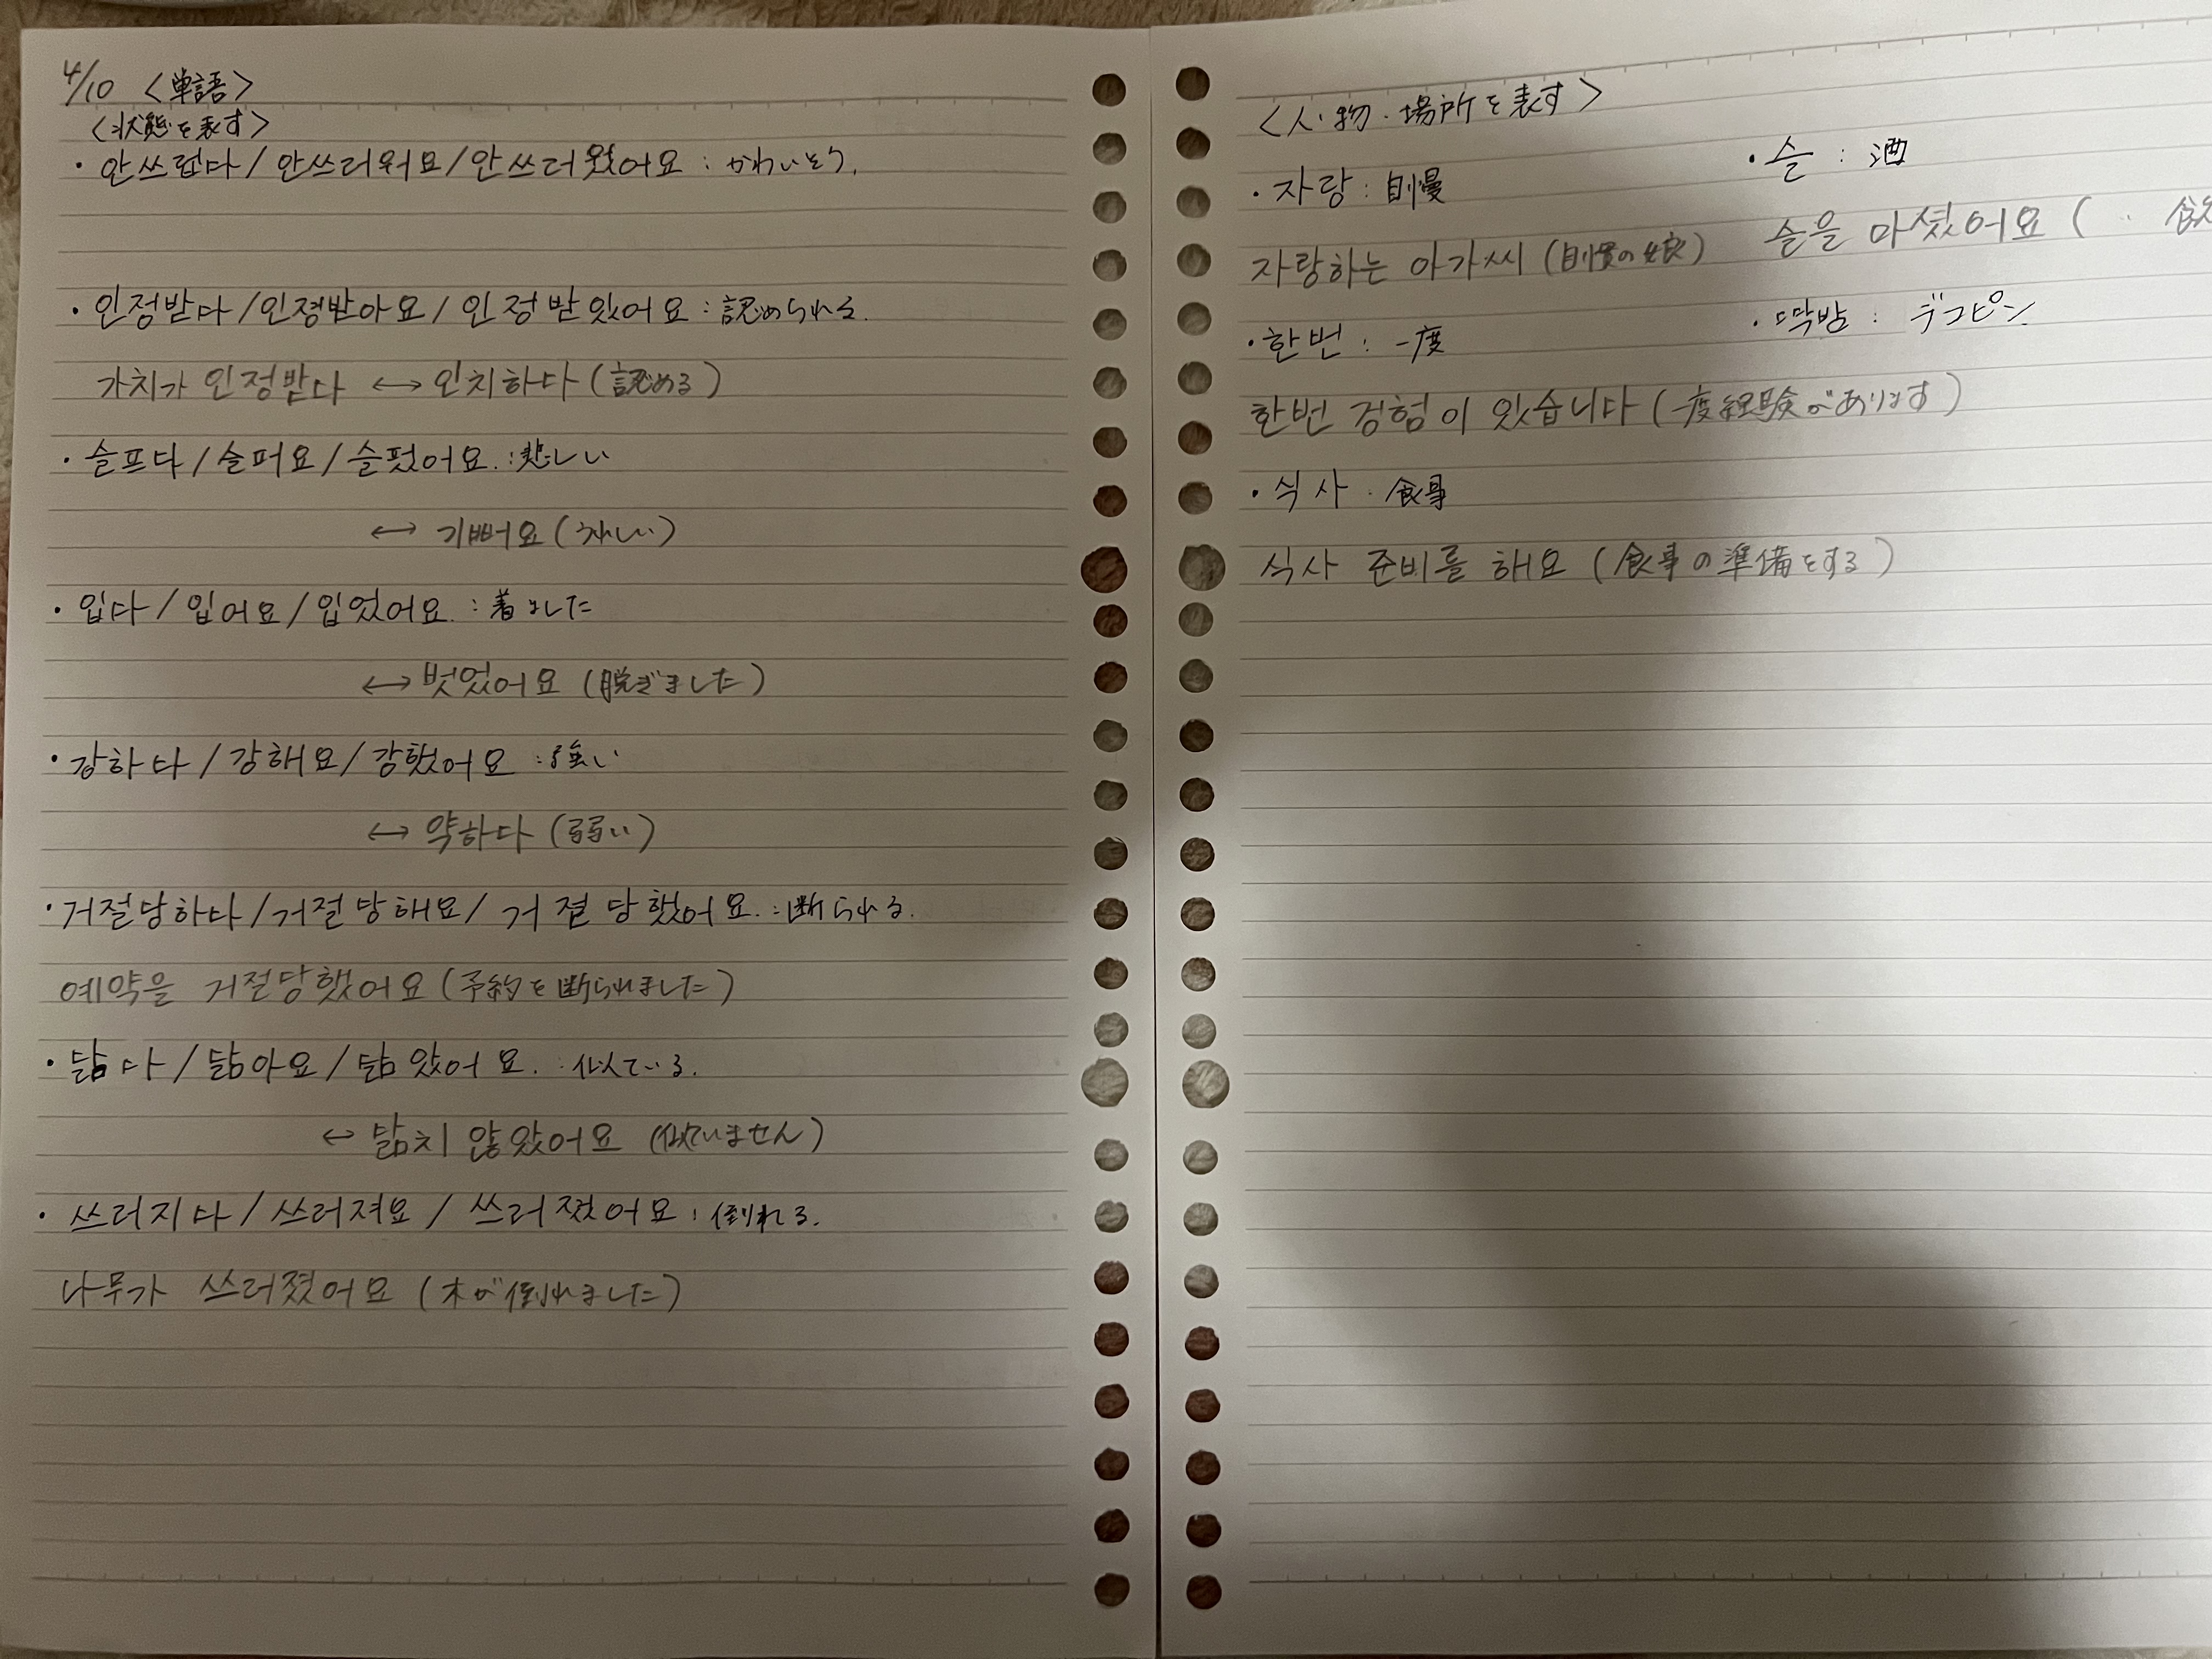 4/10 〈単語〉
〈状態を表す〉
・안쓰럽다/안쓰러워요/안쓰러웠어요:かわいそう.
・인정받다/인정받아요/인정받있어요:認められる.
가치가 인정받다 ↔ 인치하다(認める)
・슬프다/슬퍼요/슬펐어요.:悲しい
↔ 기뻐요(うれしい)
・입다/입어요/입었어요.:着ました
↔ 벗었어요(脱ぎました)
・강하다/강해요/강했어요:強い
↔ 약하다(弱い)
・거절당하다/거절당해요/거절당했어요.:断られる.
예약을 거절당했어요(予約を断られました)
・닮다/닮아요/닮았어요.:似ている.
↔ 닮치 않았어요(似ていません)
・쓰러지다/쓰러져요/쓰러졌어요:倒れる.
나무가 쓰러졌어요(木が倒れました)
〈人・物・場所を表す〉
・자랑:自慢
자랑하는 아가씨(自慢の娘)
・한번:一度
한번 경험이 있습니다(一度経験があります)
・식사:食事
식사 준비를 해요(食事の準備をする)
・술:酒
술을 마셨어요(〃 飲
・딱밤:デコピン